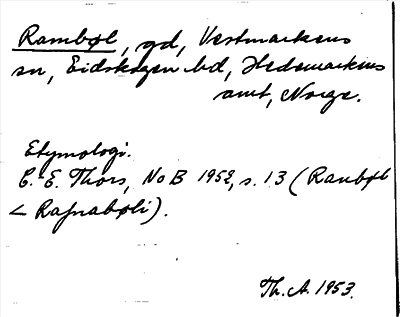 Rambøl, gd, Vestmarkens
sn, Eidskogen hd, Hedemarkens
amt, Norge.
Etymologi.
C. E. Thors, NoB 1952, s. 13 (Ranbøl
< Rafnabøli).
Th. A. 1953.